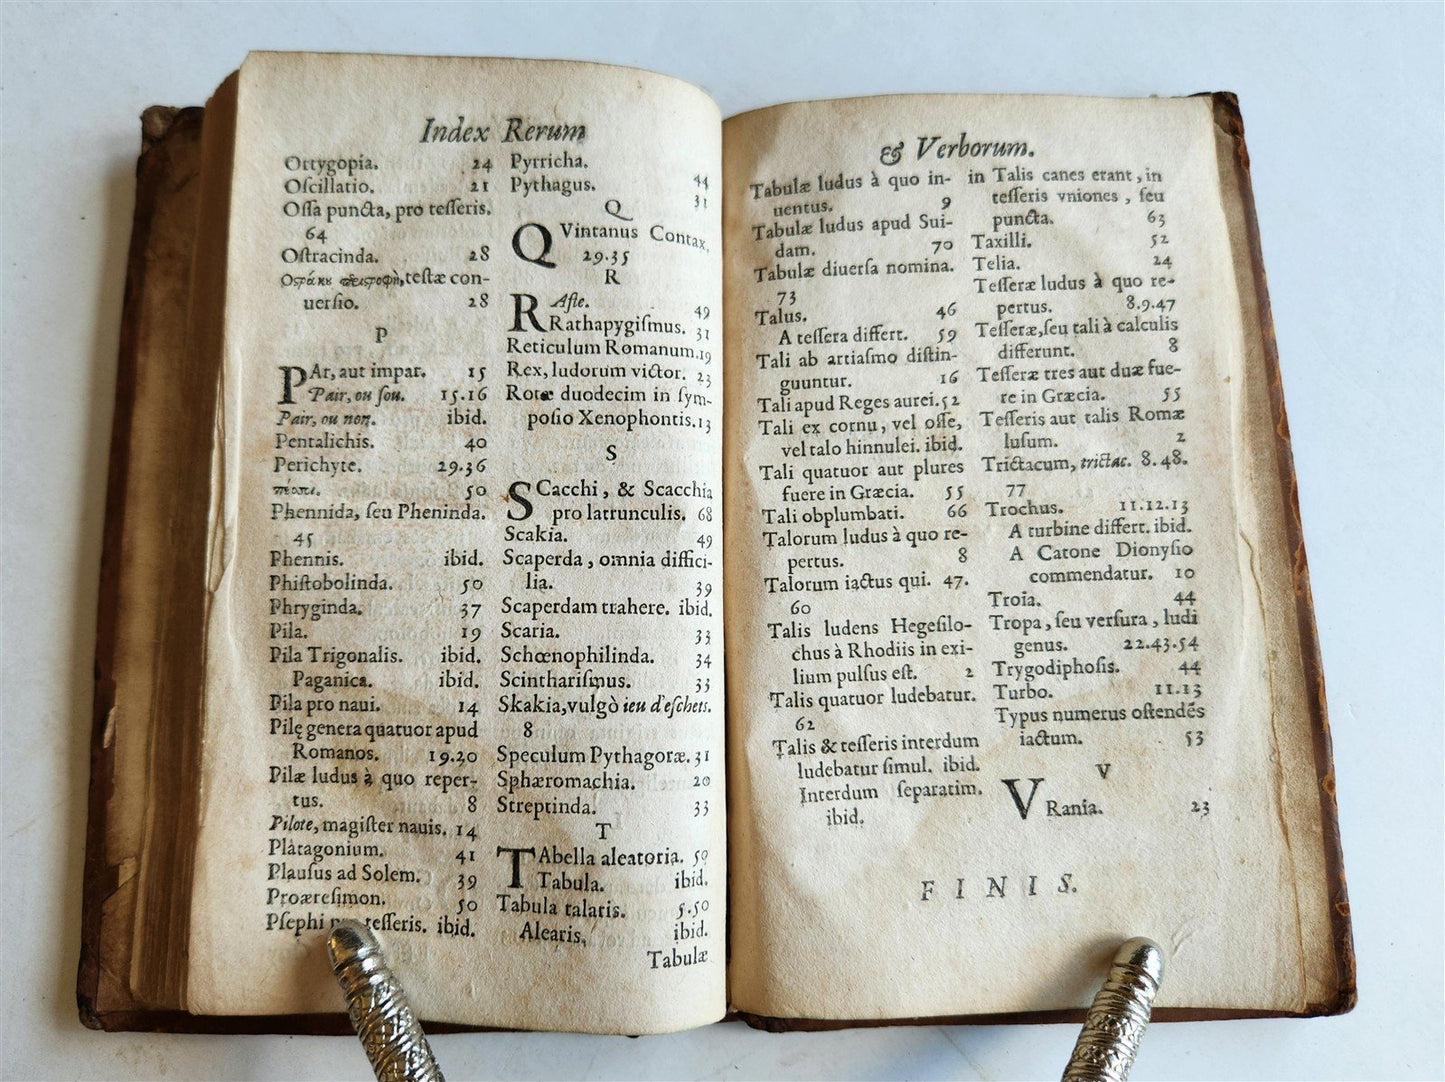 Index Rerum
Ortygopia. 24
Oſcillatio. 21
Oſſa puncta, pro teſſeris.
64
Oſtracinda. 28
teſtæ con-
uerſio. 28
P
PAr, aut impar. 15
Pair, ou ſou. 15.16
Pair, ou non. ibid.
Pentalichis. 40
Perichyte. 29.36
50
Phennida, ſeu Pheninda.
45
Phennis. ibid.
Phiſtobolinda. 50
Phryginda. 37
Pila. 19
Pila Trigonalis. ibid.
Paganica. ibid.
Pila pro naui. 14
Pilę genera quatuor apud
Romanos. 19.20
Pilæ ludus à quo reper-
tus. 8
Pilote, magiſter nauis. 14
Platagonium. 41
Plauſus ad Solem. 39
Proæreſimon. 50
Pſephi teſſeris. ibid.
Pyrricha. 44
Pythagus. 31
Q
QVintanus Contax.
29.35
R
RAſle. 49
Rathapygiſmus. 31
Reticulum Romanum. 19
Rex, ludorum victor. 23
Rotæ duodecim in ſym-
poſio Xenophontis. 13
S
SCacchi, & Scacchia
pro latrunculis. 68
Scakia. 49
Scaperda, omnia difſici-
lia. 39
Scaperdam trahere. ibid.
Scaria. 33
Schœnophilinda. 34
Scinthariſmus. 33
Skakia, vulgò ieu d'eſchets.
8
Speculum Pythagoræ. 31
Sphæromachia. 20
Streptinda. 33
T
TAbella aleatoria. 50
Tabula. ibid.
Tabula talaris. 5.50
Alearis, ibid.
Tabulæ
& Verborum.
Tabulæ ludus à quo in-
uentus. 9
Tabulæ ludus apud Sui-
dam. 70
Tabulæ diuerſa nomina.
73
Talus. 46
A teſſera differt. 59
Tali ab artiaſmo diſtin-
guuntur. 16
Tali apud Reges aurei. 52
Tali ex cornu, vel oſſe,
vel talo hinnulei. ibid.
Tali quatuor aut plures
fuere in Græcia. 55
Tali obplumbati. 66
Talorum ludus à quo re-
pertus. 8
Talorum iactus qui. 47.
60
Talis ludens Hegeſilo-
chus à Rhodiis in exi-
lium pulſus eſt. 2
Talis quatuor ludebatur.
62
Talis & teſſeris interdum
ludebatur ſimul. ibid.
Interdum ſeparatim.
ibid.
in Talis canes erant, in
teſſeris vniones, ſeu
puncta. 63
Taxilli. 52
Telia. 24
Teſſeræ ludus à quo re-
pertus. 8.9.47
Teſſeræ, ſeu tali à calculis
differunt. 8
Teſſeræ tres aut duæ fue-
re in Græcia. 55
Teſſeris aut talis Romæ
luſum. 2
Trictacum, trictac. 8.48.
77
Trochus. 11.12.13
A turbine differt. ibid.
A Catone Dionyſio
commendatur. 10
Troia. 44
Tropa, ſeu verſura, ludi
genus. 22.43.54
Trygodiphoſis. 44
Turbo. 11.13
Typus numerus oſtendēs
iactum. 53
V
VRania. 23
FINIS.